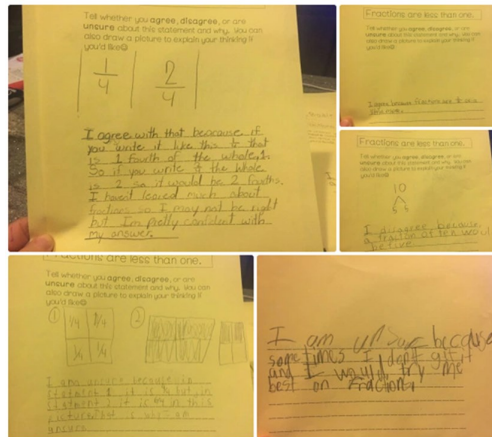 Tell whether you agree, disagree, or are
unsure about this statement and why. You can
also draw a picture to explain your thinking if
you'd like☺
1/4 2/4
I agree with that beacause if
you write it like this to that
is 1 fourth of the whole
So if you write it the whole
is 2 so it would be 2 fourths.
I havent leared much about
fractions so I may not be right
but I'm pretty confident with
my answer.
Fractions are less than one.
Tell whether you agree, disagree, or are
unsure about this statement and why. You can
also draw a picture to explain your thinking if
you'd like☺
I agree because fractions are
Fractions are less than one.
Tell whether you agree, disagree, or are
unsure about this statement and why. You can
also draw a picture to explain your thinking if
you'd like☺
10
I disagree because
a fraction of ten would
be five
Fractions are less than one.
Tell whether you agree, disagree, or are
unsure about this statement and why. You can
also draw a picture to explain your thinking if
you'd like☺
1 2
1/4 1/4
I am unsure because in
statment it is but in
statment it is in this
picture that is why I am
unsure
I am unsure because
sometimes I don't get it
and I would try me
best on fractions